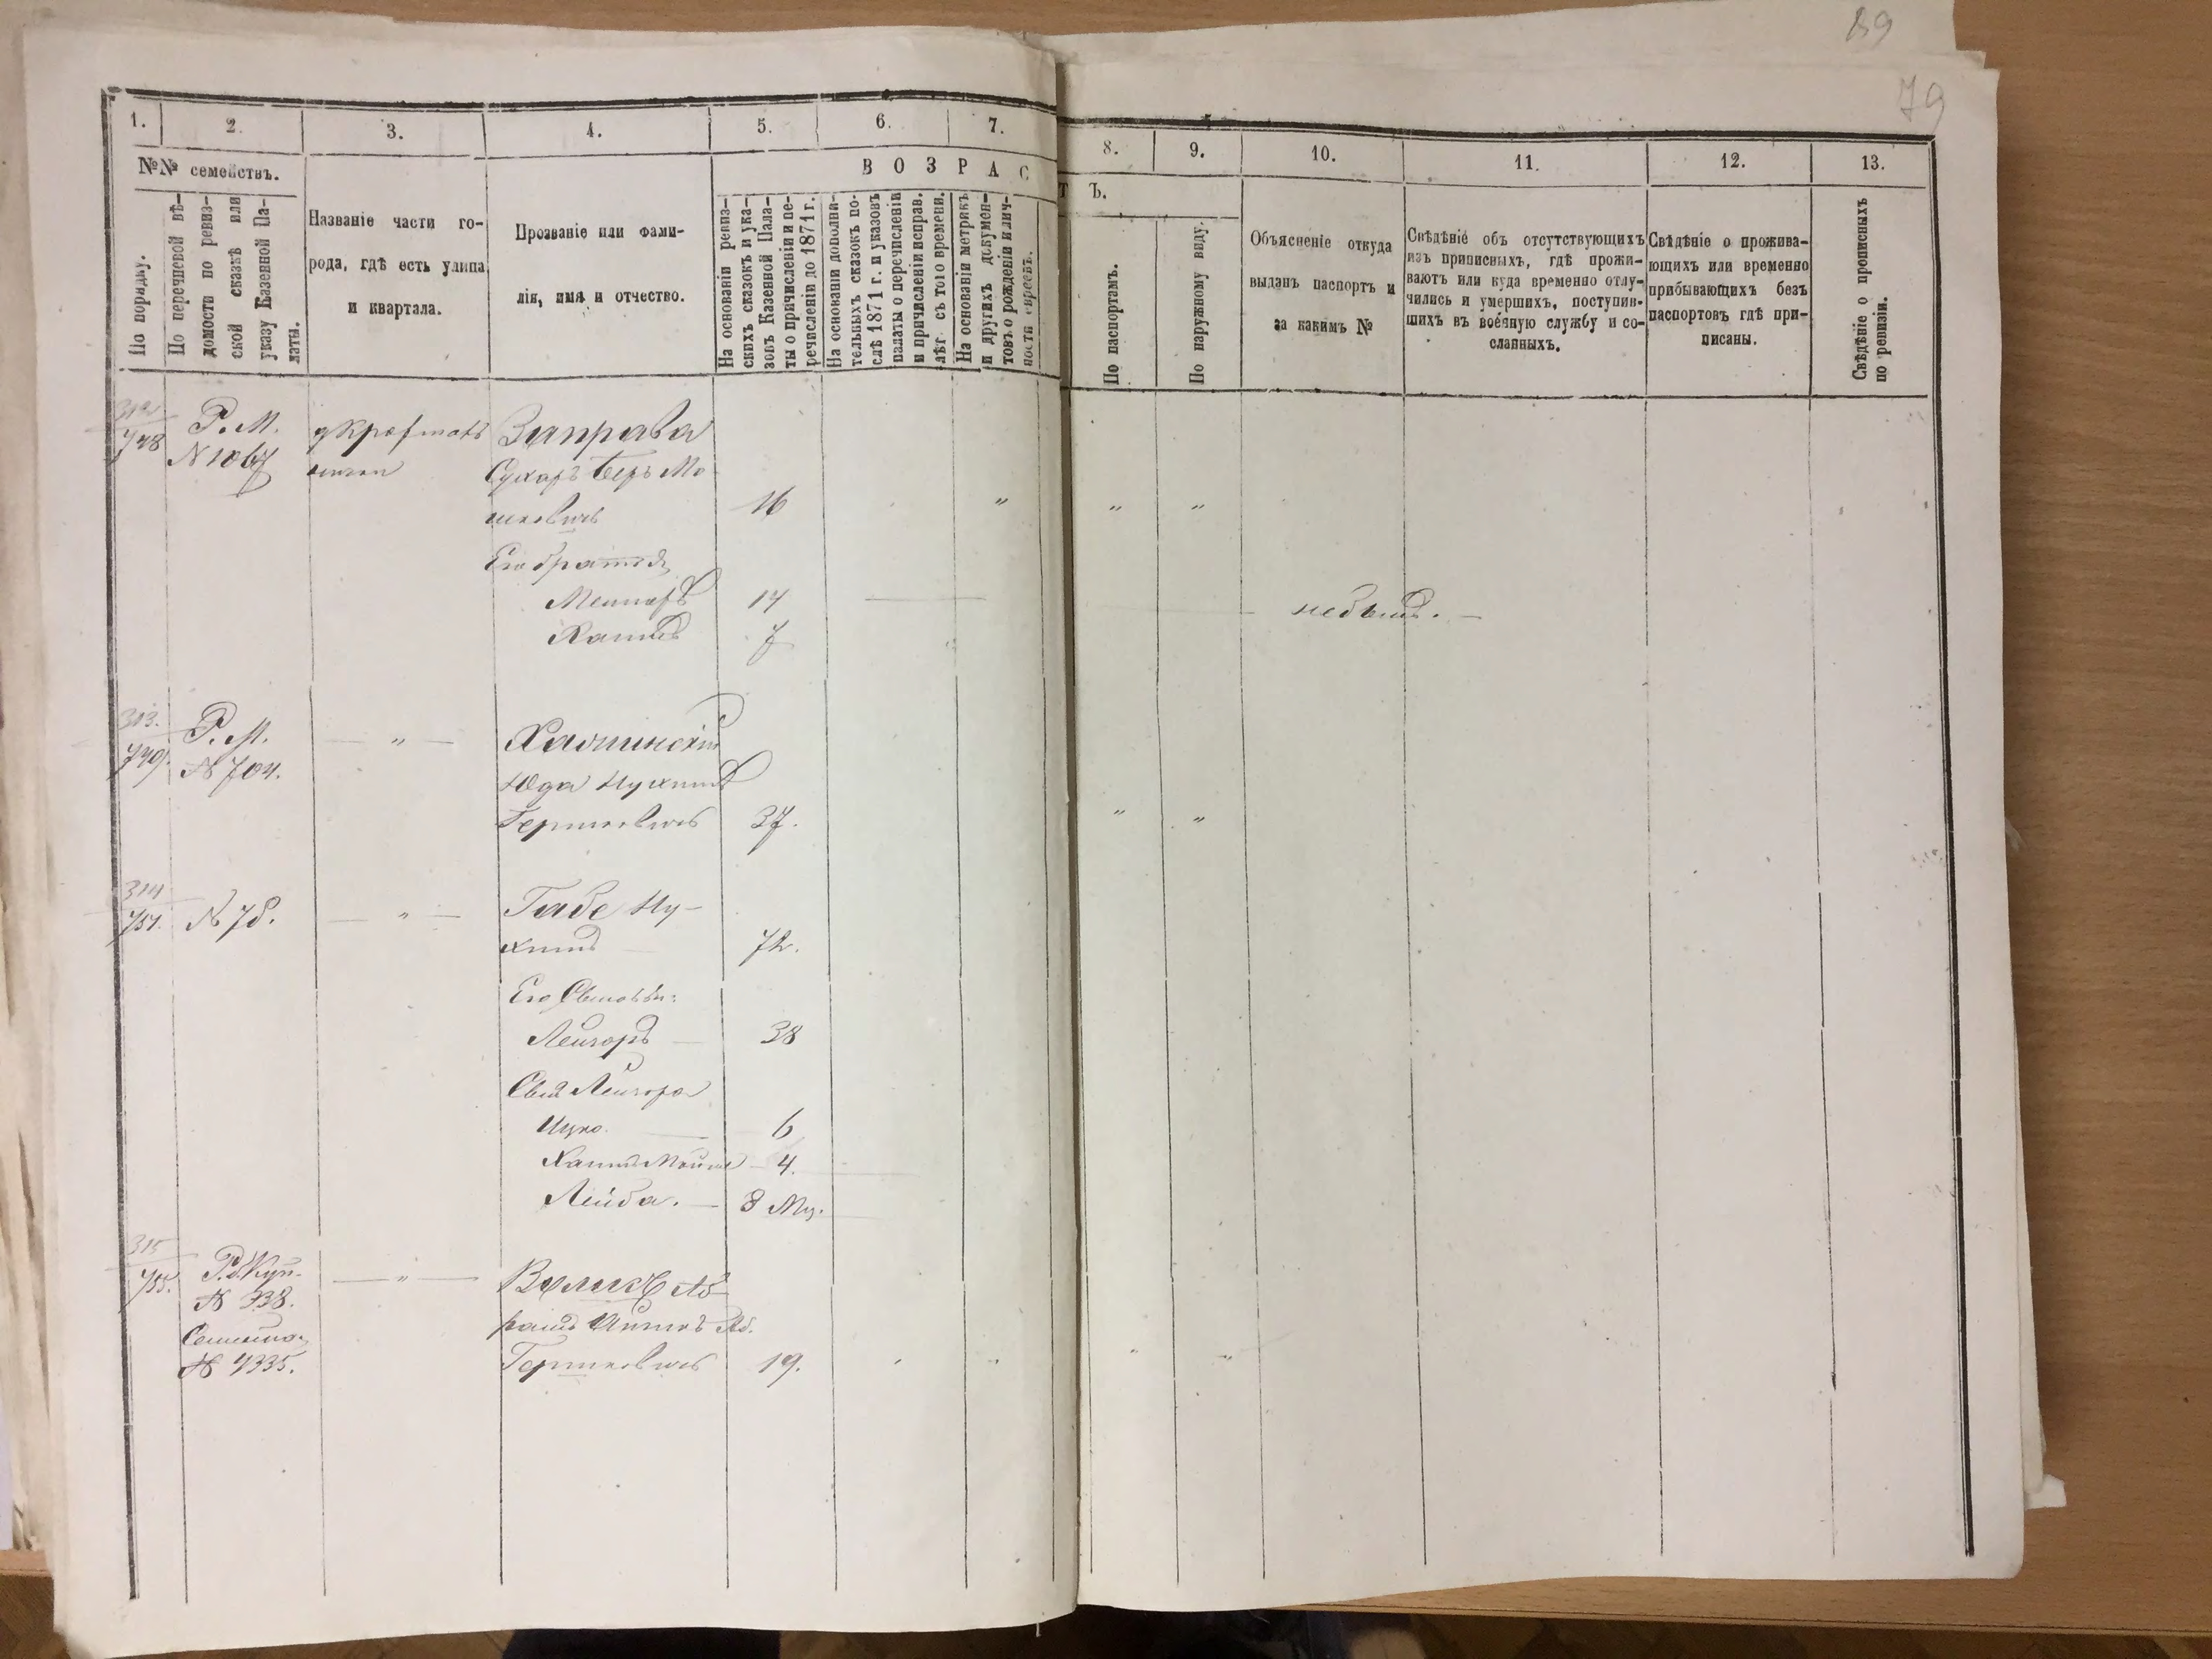 89
79
1.
2.
3.
4.
5.
6.
7.
8.
9.
10.
11.
12.
13.
№№ семействъ.
По порядку.
По перечневой вѣ-
домости по ревиз-
ской сказкѣ или
указу Казенной Па-
латы.
Названіе части го-
рода, гдѣ есть улица
и квартала.
Прозваніе или фами-
лія, имя и отчество.
ВОЗРАС
ТЪ.
На основаніи ревиз-
скихъ сказокъ и ука-
зовъ Казенной Пала-
ты о причисленіи и пе-
речисленіи до 1871 г.
На основаніи дополни-
тельныхъ сказокъ по-
слѣ 1871 г. и указовъ
палаты о перечисленіи
и причисленіи исправ.
лѣт. съ того времени.
На основаніи метрикъ
и другихъ докумен-
товъ о рожденіи и лич-
ности евреевъ.
По паспортамъ.
По наружному виду.
Объясненіе откуда
выданъ паспортъ и
за какимъ №
Свѣдѣніе объ отсутствующихъ
изъ приписныхъ, гдѣ прожи-
ваютъ или куда временно отлу-
чились и умершихъ, поступив-
шихъ въ военную службу и со-
сланныхъ.
Свѣдѣніе о прожива-
ющихъ или временно
прибывающихъ безъ
паспортовъ гдѣ при-
писаны.
Свѣдѣніе о прописныхъ
по ревизіи.
312
748
Р. М.
N 1067
Заправа
Сухаръ Беръ Мо
шковичъ
16
" " "
Его братья
14
Хаимъ
7
небылъ.
313.
749.
Р. М.
№ 704.
— " —
Юда Нухимъ
Гершковичъ
37.
" "
314
751.
№ 78.
— " —
Габе Ну-
химъ
72.
Его Сыновья:
Лейзоръ
38
Сын. Лейзора
Ицко
6
Хаимъ Мойше
4.
Лейба.
8 Мц.
315
755.
Куп.
№ 338.
№ 4335.
— " —
Аб
рамъ
Гершковичъ
19.